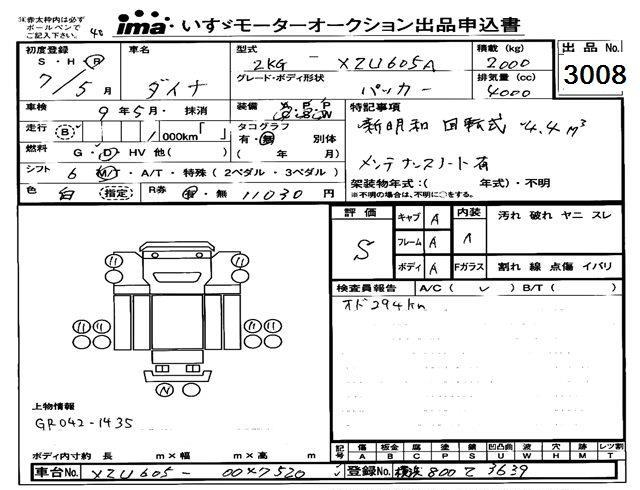 ※赤太枠内は必ず
ボールペンで
ご記入下さい。
ima いすゞモーターオークション出品申込書
初度登録 S・H・R 7/5月
車名 ダイナ
型式 2KG - XZU605A
積載 (kg) 2000
出品 No. 3008
グレード・ボディ形状 パッカー
排気量 (cc) 4000
車検 9年5月・抹消
装備
特記事項
走行 (B) 000km「 」
タコグラフ 有・無 別体 ( 年 月)
新明和 回転式 4.4m³
燃料 G・D・HV 他( )
メンテナンスノート有
シフト 6 M/T・A/T・特殊(2ペダル・3ペダル)
架装物年式:( 年式)・不明
※不明の場合は、不明に○をする。
色 白 (指定) R券 有・無 11030 円
評価 S
キャブ A 内装 A 汚れ 破れ ヤニ スレ
フレーム A
ボディ A Fガラス 割れ 線 点傷 イバリ
検査員報告 A/C( ✓ ) B/T( )
オド294km
N
上物情報
GR042-1435
ボディ内寸約 長 m×幅 m×高 m
記号 傷 A 板金 B 腐 C 塗 P 錆 S 凹凸曲 U 波 W 穴 H 跡 M レツ割 T
車台No. XZU605-00*7520
登録No. 横浜800て3639